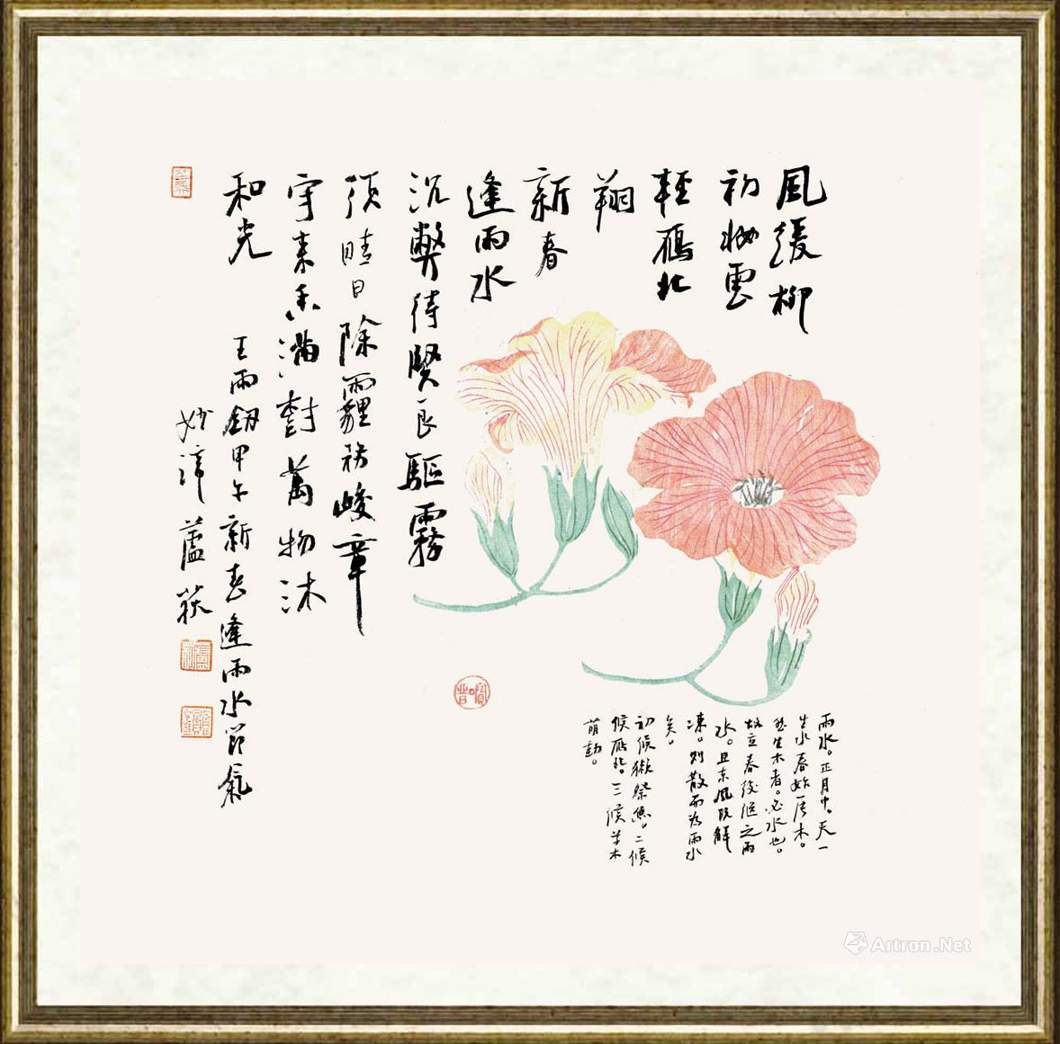 風緩柳
初妝雲
輕雁北
翔
新春
逢雨水
沉弊待賢良驅霧
須晴日除霾務峻章
宇素香滿對萬物沐
和光
王雨釰甲午新春逢雨水節氣
妙諱蘆荻
雨水。正月中。天一
生水春始屬木。
然生木者。必水也。
故立春後繼之雨
水。且東風既解
凍。則散而為雨水
矣。
初候獺祭魚。二候
候雁北。三候草木
萌動。
Artron.Net